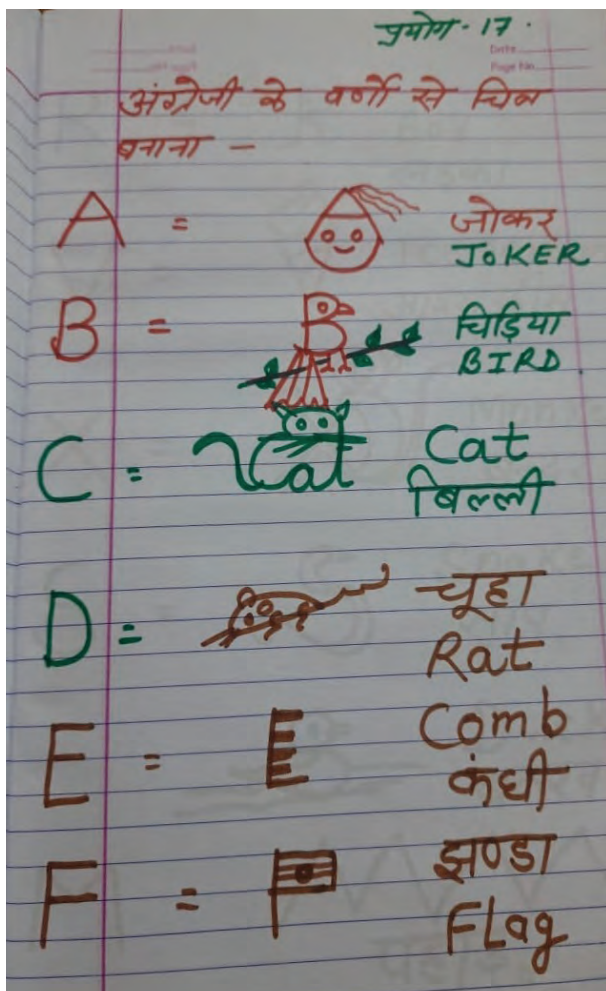 प्रयोग - 17 .
Date
Page No.
अंग्रेजी के वर्णो से चित्र
बनाना —
A = जोकर
JOKER
B = B चिड़िया
BIRD
C = Cat Cat
बिल्ली
D = चूहा
Rat
E = E Comb
कंघी
F = झण्डा
FLag